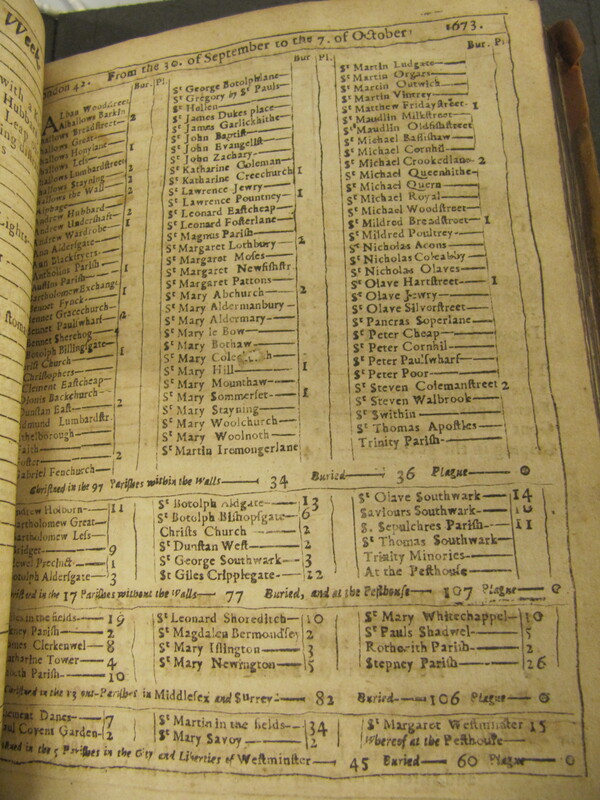 From the 30. of September to the 7. of October 1673.
Bur. Pl.
Bur Pl.
Bur. Pl.
Alban Woodstreet
Alhallows Barkin
Breadstreet
Great
Honylane 1
Less
Lumbardstreet
Stayning
the Wall
Hubbard
Undershaft
Wardrobe
Ann Aldersgate
Ann Blackfryers
Parish
Parish
Bartholomew Exchange
Fynck
Gracechurch
Paulswharf
Sherehog
Botolph Billingsgate
Church
Christophers
Clement Eastcheap
Dionis Backchurch
Dunstan East 2
Edmund Lumbardstr.
Gabriel Fenchurch 2
St George Botolphlane
St Gregory by St Pauls
St Hellen
St James Dukes place
St James Garlickhithe
St John Baptist
St John Evangelist
St John Zachary
St Katharine Coleman
St Katharine Creechurch 1
St Lawrence Jewry
St Lawrence Pountney 1
St Leonard Eastcheap
St Leonard Fosterlane
St Magnus Parish
St Margaret Lothbury 2
St Margaret Moses
St Margaret Newfishstr
St Margaret Pattons
St Mary Abchurch 2
St Mary Aldermanbury
St Mary Aldermary
St Mary le Bow
St Mary Bothaw
St Mary
St Mary Hill 1
St Mary Mounthaw
St Mary Somerset 1
St Mary Stayning
St Mary Woolchurch
St Mary Woolnoth
St Martin Iremongerlane
St Martin Ludgate
St Martin Orgars
St Martin Outwich
St Martin Vintrey
St Matthew Fridaystreet 1
St Maudlin Milkstreet
St Maudlin Oldfishstreet
St Michael Bassishaw
St Michael Cornhil
St Michael Crookedlane 2
St Michael Queenhithe
St Michael Quern
St Michael Royal
St Michael Woodstreet
St Mildred Breadstreet 1
St Mildred Poultrey
St Nicholas Acons
St Nicholas Coleabby
St Nicholas Olaves
St Olave Hartstreet 1
St Olave Jewry
St Olave Silverstreet
St Pancras Soperlane
St Peter Cheap
St Peter Cornhil
St Peter Paulswharf
St Peter Poor
St Steven Colemanstreet 2
St Steven Walbrook
St Swithin
St Thomas Apostles
Trinity Parish
Christned in the 97 Parishes within the Walls 34 Buried 36 Plague 0
Andrew Holborn 11
Bartholomew Great
Bartholomew Less
Bridget 9
Precinct 1
Botolph Aldersgate 3
St Botolph Aldgate 13
St Botolph Bishopsgate 6
Christs Church 2
St Dunstan West 2
St George Southwark 3
St Giles Cripplegate 22
St Olave Southwark 14
Saviours Southwark
S. Sepulchres Parish 11
St Thomas Southwark
Trinity Minories
At the Pesthouse
Christned in the 17 Parishes without the Walls 77 Buried, and at the Pesthouse 107 Plague 0
in the fields 19
Parish 2
James Clerkenwel 8
Katharine Tower 4
Parish 10
St Leonard Shoreditch 10
St Magdalen Bermondsey 2
St Mary Islington 3
St Mary Newington 5
St Mary Whitechappel 10
St Pauls Shadwel 5
Rotherith Parish 2
Stepney Parish 26
Christned in the 13 out-Parishes in Middlesex and Surrey 82 Buried 106 Plague 0
Clement Danes 7
Paul Covent Garden 2
St Martin in the fields 34
St Mary Savoy 2
St Margaret Westminster 15
Whereof at the Pesthouse
Christned in the 5 Parishes in the City and Liberties of Westminster 45 Buried 60 Plague 0